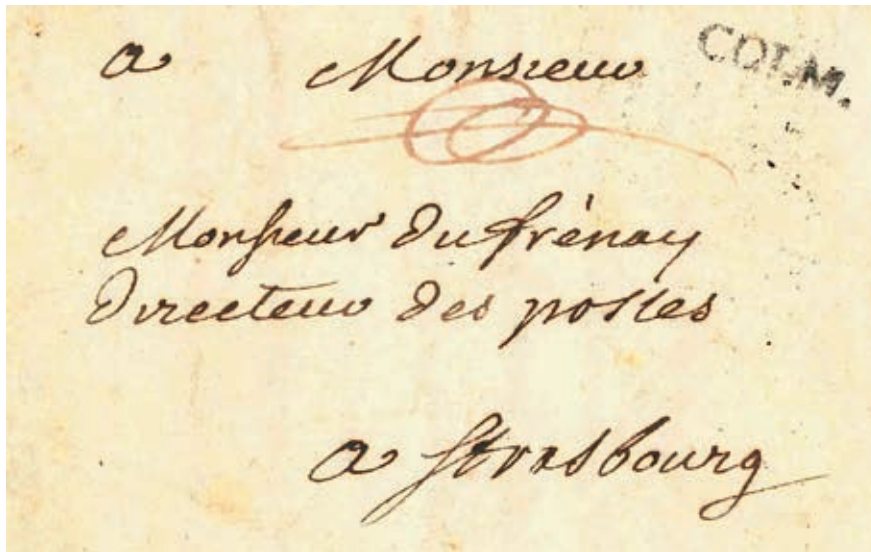 a Monsieur
COLM.
Monsieur du frénay
directeur des postes
a Strasbourg